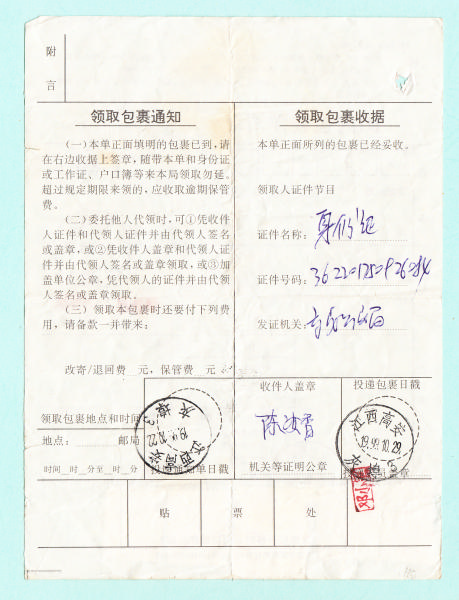 附
言
领取包裹通知
(一)本单正面填明的包裹已到,请
在右边收据上签章,随带本单和身份证
或工作证、户口簿等来本局领取勿延。
超过规定期限来领的,应收取逾期保管
费。
(二)委托他人代领时,可①凭收件
人证件和代领人证件并由代领人签名
或盖章,或②凭收件人盖章和代领人证
件并由代领人签名或盖章领取,或③加
盖单位公章,凭代领人的证件并由代领
人签名或盖章领取。
(三)领取本包裹时还要付下列费
用,请备款一并带来:
改寄/退回费 元,保管费 元
领取包裹地点和时间
地点: 邮局
时间 时 分至 时 分
投递通知单日戳
江西高安
1998.10.22
领取包裹收据
本单正面所列的包裹已经妥收。
领取人证件节目
证件名称:身份证
证件号码:
发证机关:
收件人盖章
机关等证明公章
投递包裹日戳
江西高安
1998.10.29
盖章
贴 票 处